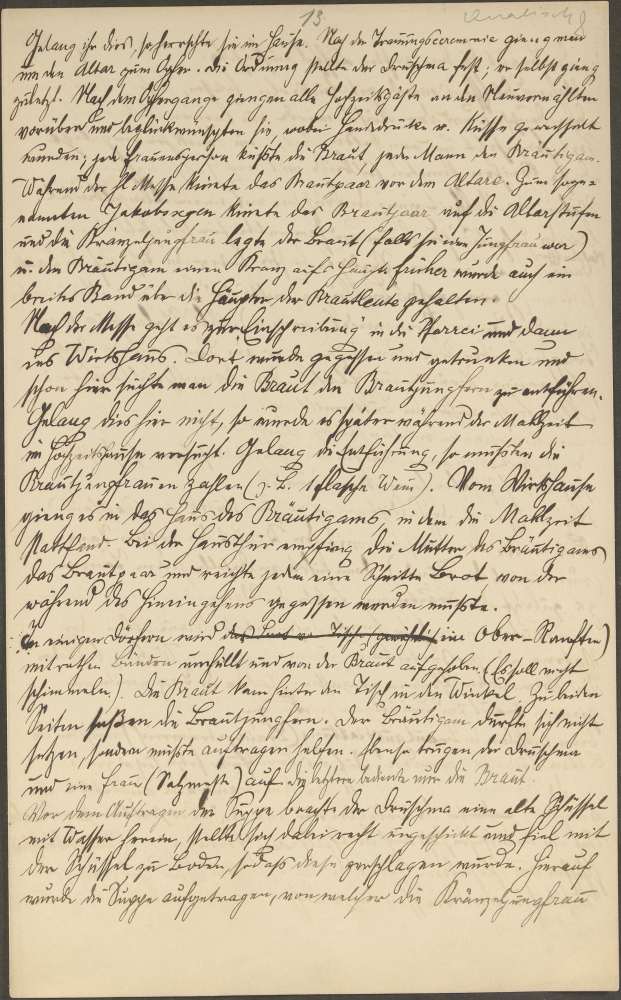 13
Gelang ihr dies, so herrschte sie im Hause. Nach der Trauungsceremonie gieng man
um den Altar zum Opfer. Die Ordnung stellte der Druschma fest; er selbst gieng
zuletzt. Nach dem Opfergange giengen alle Hochzeitsgäste an den Neuvermählten
vorüber und beglückwünschten sie, wobei Händedrücke u. Küsse gewechselt
wurden; jede Frauensperson küsste die Braut, jeder Mann den Bräutigam.
Während der hl. Messe kniete das Brautpaar vor dem Altare. Zum soge-
nannten Jakobssegen kniete das Brautpaar auf die Altarstufen
und die Kränzeljungfrau legte der Braut (falls sie eine Jungfrau war)
u. dem Bräutigam einen Kranz aufs Haupt. Früher wurde auch ein
breites Band über die Häupter der Brautleute gehalten.
Nach der Messe geht es zur "Einschreibung" in die Pfarrei und dann
ins Wirtshaus. Dort wurde gegessen und getrunken und
schon hier suchte man die Braut den Brautjungfern zu entführen.
Gelang dies hier nicht, so wurde es später während der Mahlzeit
im Hochzeitshause versucht. Gelang die Entführung, so mußten die
Brautjungfrauen zahlen (z. B. 1 Flasche Wein). Vom Wirtshause
gieng es in das Haus des Bräutigams, in dem die Mahlzeit
stattfand. Bei der Hausthür empfing die Mutter des Bräutigams
das Brautpaar und reichte jedem eine Schnitte Brot, von der
während des Hineingehens gegessen werden mußte.
In einigen Dörfern wird eine Ober-Ranften)
mit rothen Bändern umhüllt und von der Braut aufgehoben. (Es soll nicht
schimmeln.) Die Braut kam hinter den Tisch in den Winkel. Zu beiden
Seiten saßen die Brautjungfern. Der Bräutigam durfte sich nicht
setzen, sondern mußte auftragen helfen. Ebenso trugen der Druschma
und eine Frau (Salzmeste) auf. die letztere bediente nur die Braut.
Vor dem Auftragen der Suppe brachte der Druschma eine alte Schüssel
mit Wasser herein, stellte sich dabei recht ungeschickt und fiel mit
der Schüssel zu Boden, sodass diese zerschlagen wurde. Hierauf
wurde die Suppe aufgetragen, von welcher die Kränzeljungfrau